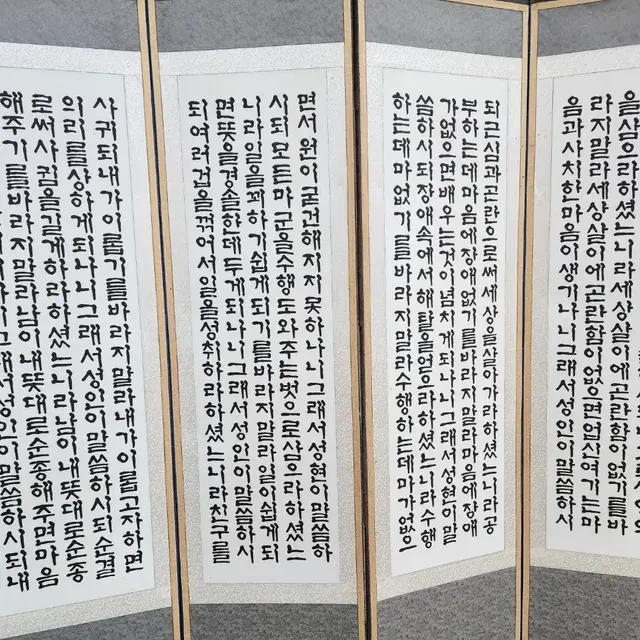 을삼으라하셨느니라세상살이에곤란함이없기를바
라지말라세상살이에곤란함이없으면업신여기는마
음과사치한마음이생기나니그래서성인이말씀하시
되근심과곤란으로써세상을살아가라하셨느니라공
부하는데마음에장애없기를바라지말라마음에장애
가없으면배우는것이넘치게되나니그래서성현이말
씀하시되장애속에서해탈을얻으라하셨느니라수행
하는데마없기를바라지말라수행하는데마가없으
면서원이굳건해지지못하나니그래서성현이말씀하
시되모든마군을수행도와주는벗으로삼으라하셨느
니라일을꾀하기쉽게되기를바라지말라일이쉽게되
면뜻을경솔한데두게되나니그래서성인이말씀하시
되여러겁을꺾어서일을성취하라하셨느니라친구를
사귀되내가이롭기를바라지말라내가이롭고자하면
의리를상하게되나니그래서성인이말씀하시되순결
로써사귐을길게하라하셨느니라남이내뜻대로순종
해주기를바라지말라남이내뜻대로순종해주면마음
그래서성인이말씀하시되내